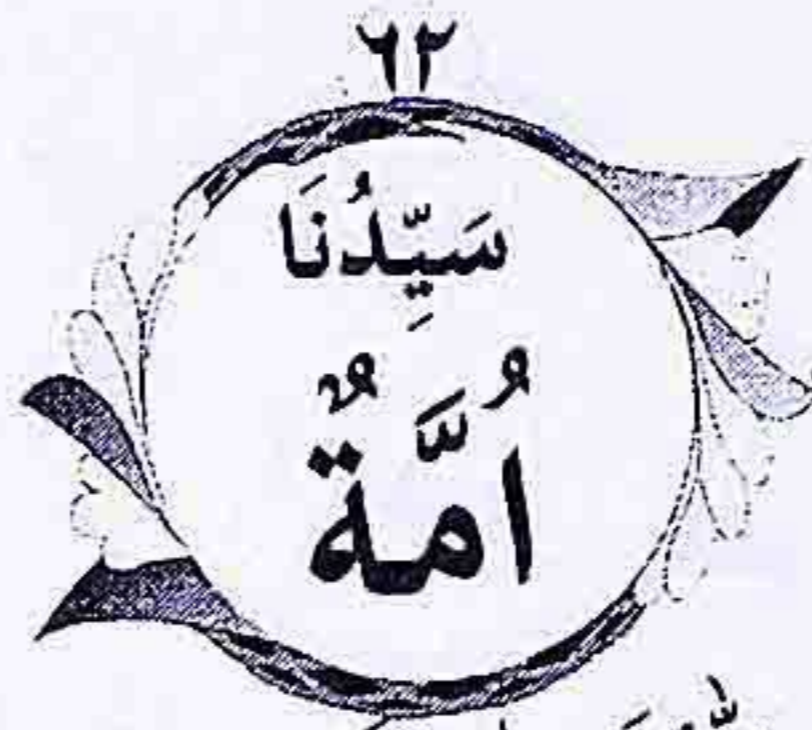 ٦٢
سَيِّدُنَا
اُمَّةٌ